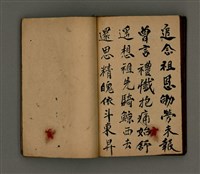 追念祖恩劬勞未報
曹言禮懺抱痛始行
遙想祖先騎鯨西去
還思精魄依斗東昇